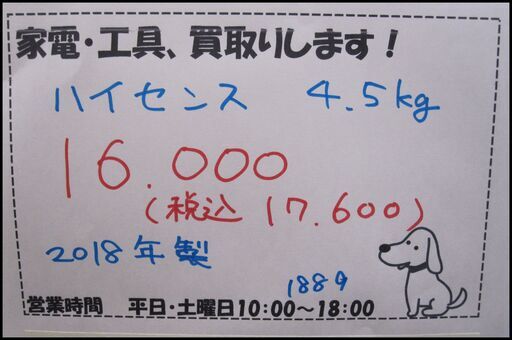 家電・工具、買取りします！
ハイセンス 4.5kg
16.000
(税込 17.600)
2018年製
1889
営業時間 平日・土曜日10:00～18:00